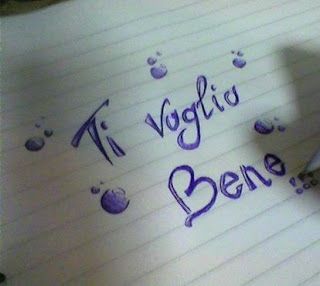 Ti voglio
Bene...